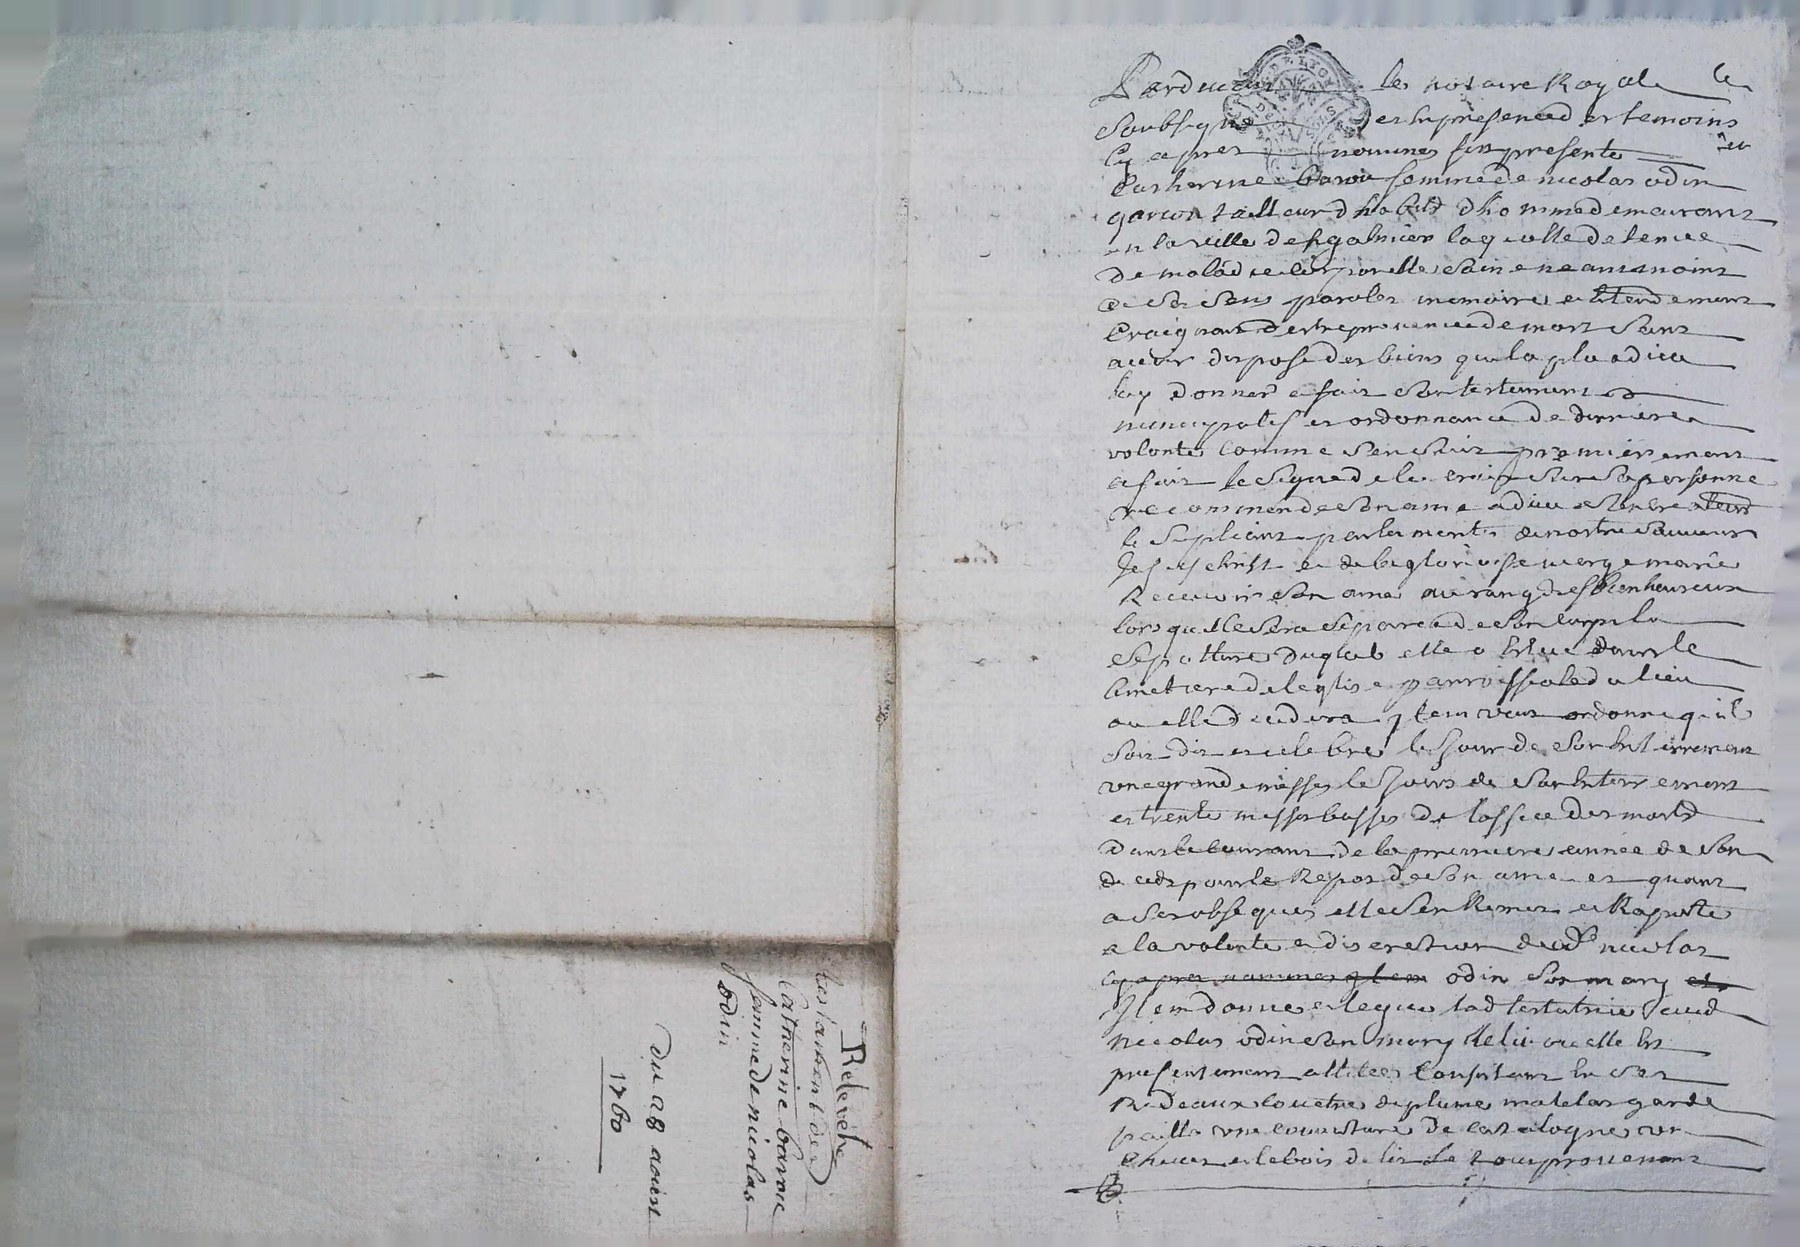 Pardevant le notaire Royal le
Soubsigné et En presence d es temoins
Cy apres nommes fut presente
Catherine barou femme de nicolas odin
garcon tailleur d habits dhomme demeurant
en la ville de sgalmier laquelle detenue
De maladie corporelle saine neantmoins
de ses sens paroles memoire et Entendement
Craignant destre prevenue de mort sans
avoir dispose des biens que la plu a dieu
luy donner a fait son testament
nuncupatif et ordonnance de derniere
volonte comme sensuit premierement
a fait le signe de la croix sur sa personne
recommende son ame a dieu
le supliant par les merites de nostre sauveur
Jesus Christ et de la glorieuse vierge marie
Recevoir son ame au rang des bienheureux
lors quelle sera separee de son corps la
sepulture duquel elle a Elue dans le
Cimetiere de leglise parroissiale du lieu
ou elle decedera Item veut ordonne quil
soit dit et celebre le Jour de son Enterrement
une grande messe le Jours de son Enterrement
et trente messes basses de loffice des morts
dans le courant de la premiere année de son
deceds pour le Repos de son ame et quant
a ses obseques elle sen Remet et Raporte
a la volonte et discretion dud nicolas
cy apres nommes Item odin son mary et
Item donne et legue lad testatrice aud
Nicolas odin son mary le lit ou elle Est
presentement allitee Consistant En ses
Rideaux couetre de plume matelas garde
paille une couverture de catalogne un
chevet et le bois de lit le tout provenant
Relevé
testament de
Catherine barou
femme de nicolas
odin
du 28 aoust
1760